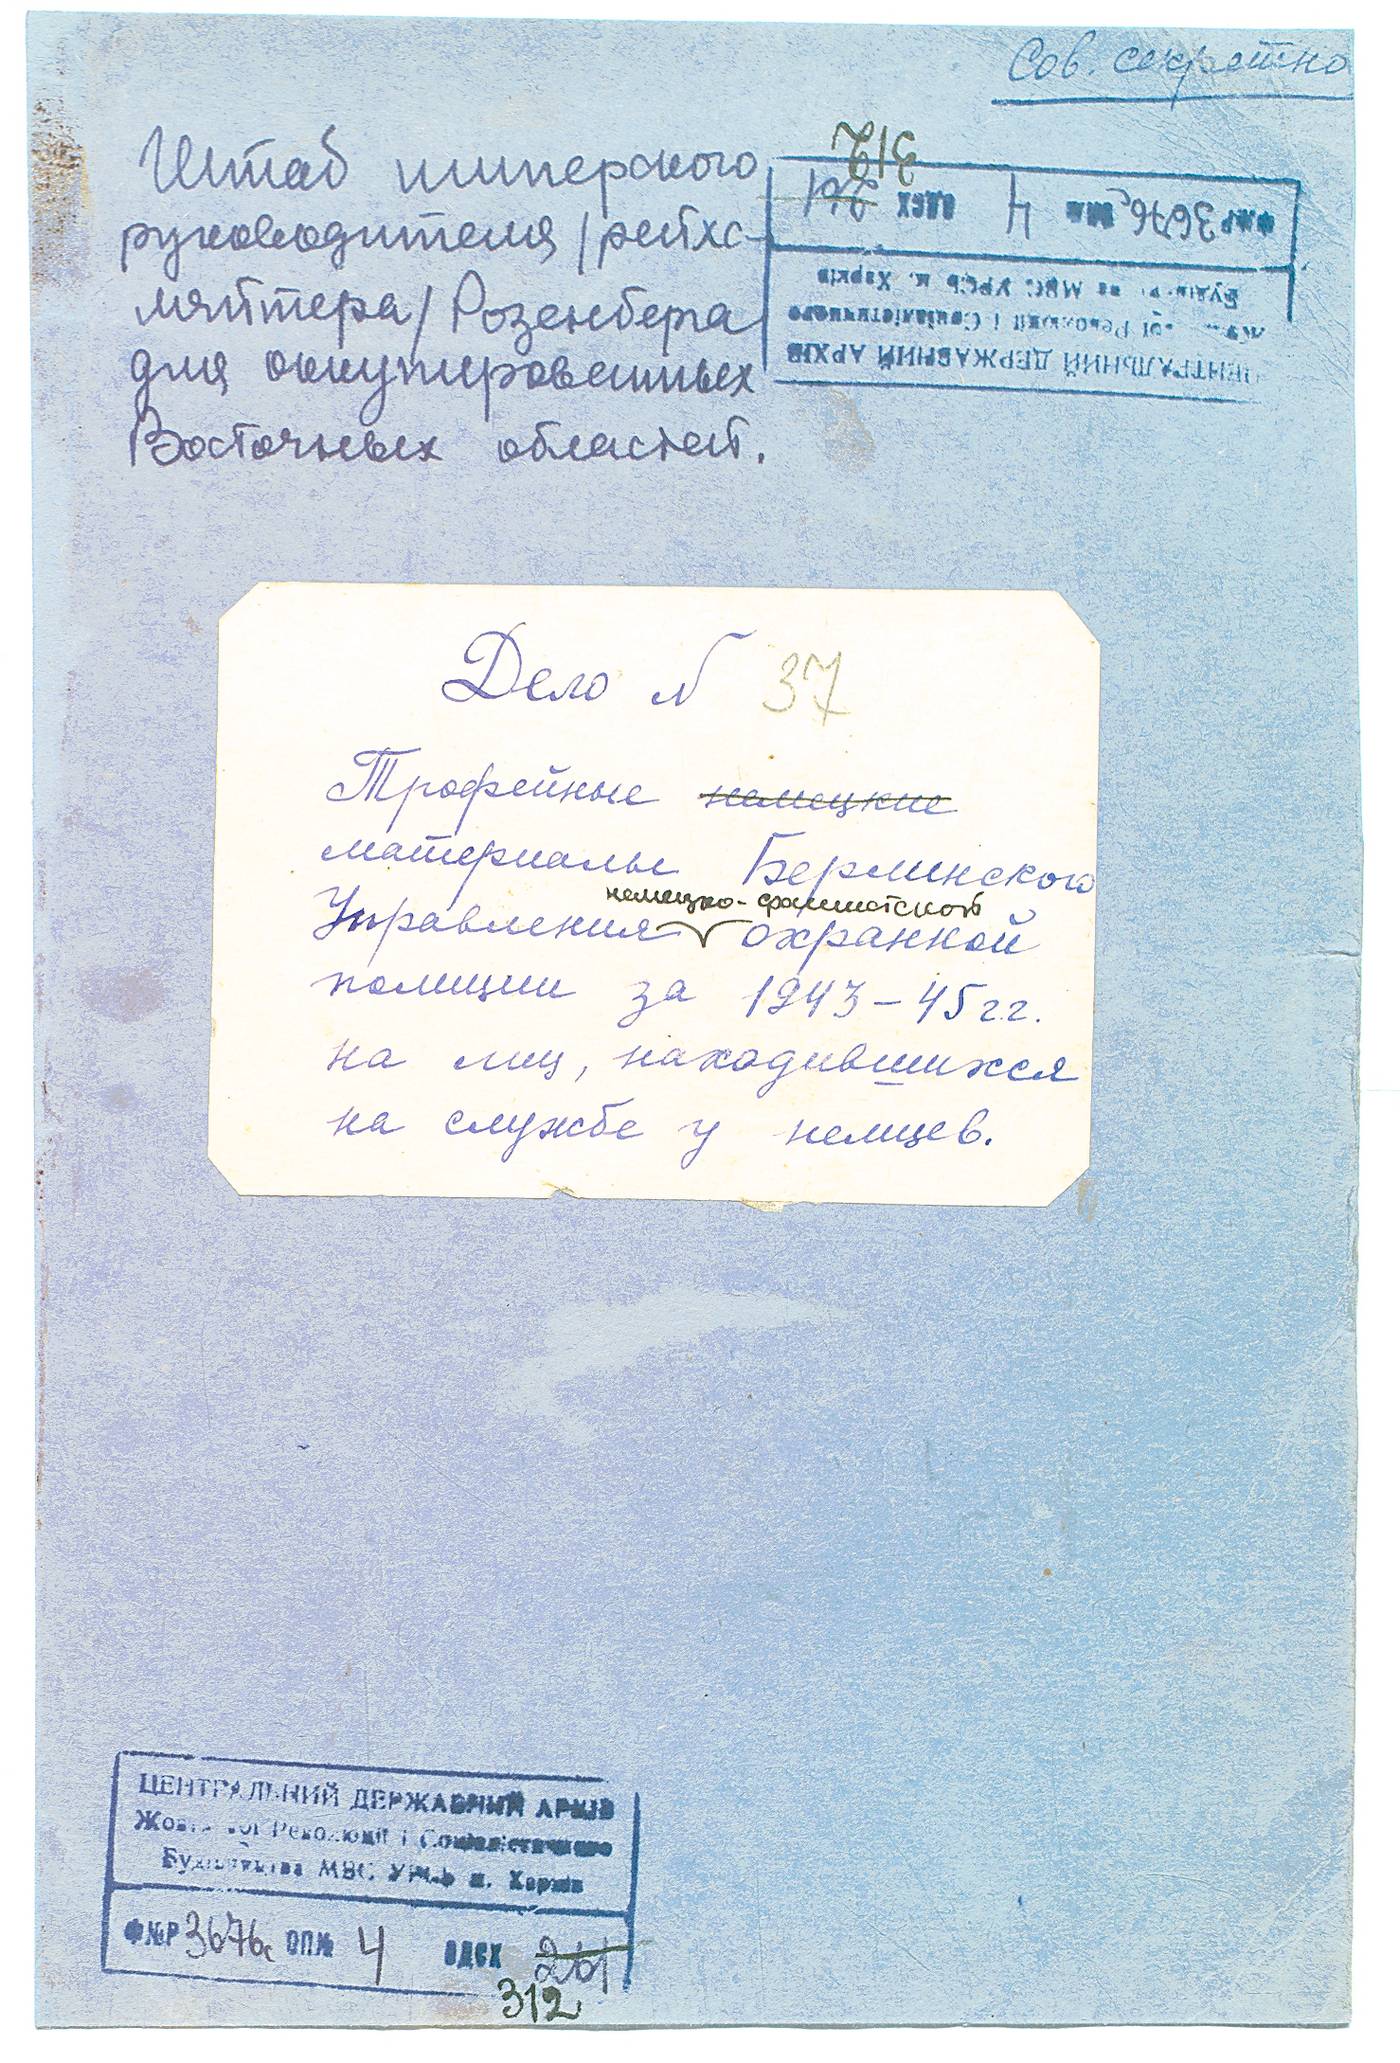 Сов. секретно
Штаб имперского
руководителя /рейхс-
ляйтера/ Розенберга
для оккупированных
Восточных областей.
312
Ф.№Р 3676с ОП.№ 4 ОДСХ 261
ЦЕНТРАЛЬНИЙ ДЕРЖАВНИЙ АРХІВ
Революції і Соціалістичного
МВС УРСР м. Харків
Дело № 37
Трофейные немецкие
материалы Берлинского
немецко-фашистской
Управления охранной
полиции за 1943-45 г.г.
на лиц, находившихся
на службе у немцев.
ЦЕНТРАЛЬНИЙ ДЕРЖАВНИЙ АРХІВ
Жовтневої Революції і Соціалістичного
Будівництва МВС УРСР м. Харків
Ф.№Р 3676с ОП.№ 4 ОДСХ 261
312